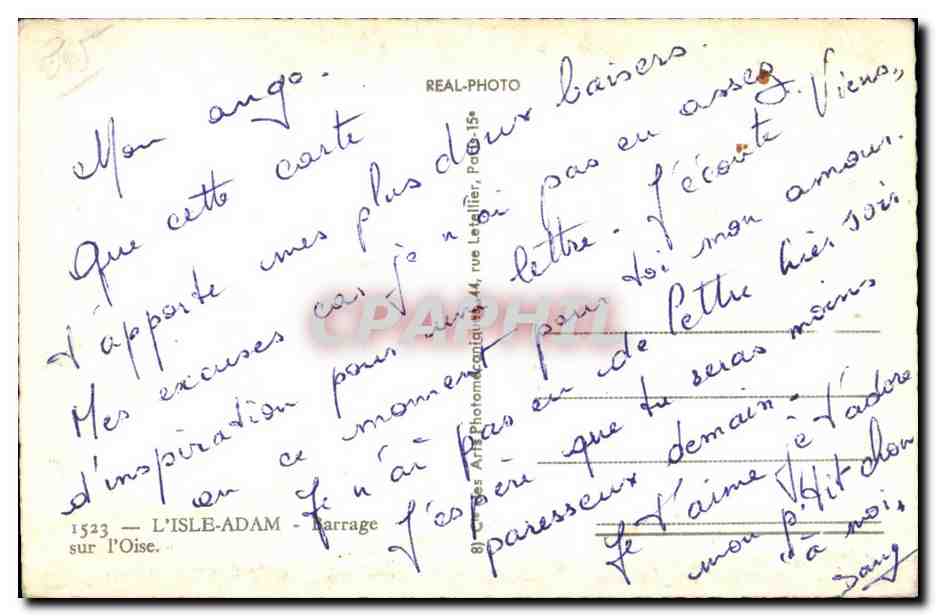 REAL-PHOTO
Mon ange.
Que cette carte
t'apporte mes plus doux baisers.
Mes excuses car je n'ai pas eu assez
d'inspiration pour une lettre. J'écoute "Viens,
en ce moment pour toi mon amour.
Je n'ai pas eu de lettre hier soir.
J'espère que tu seras moins
paresseux demain.
Je t'aime je t'adore
mon p'tit chou
"à moi"
Dany
1523 — L'ISLE-ADAM - Barrage
sur l'Oise.
Arts Photomécaniques, 44, rue Letellier, Paris-15e
CPAPHIL